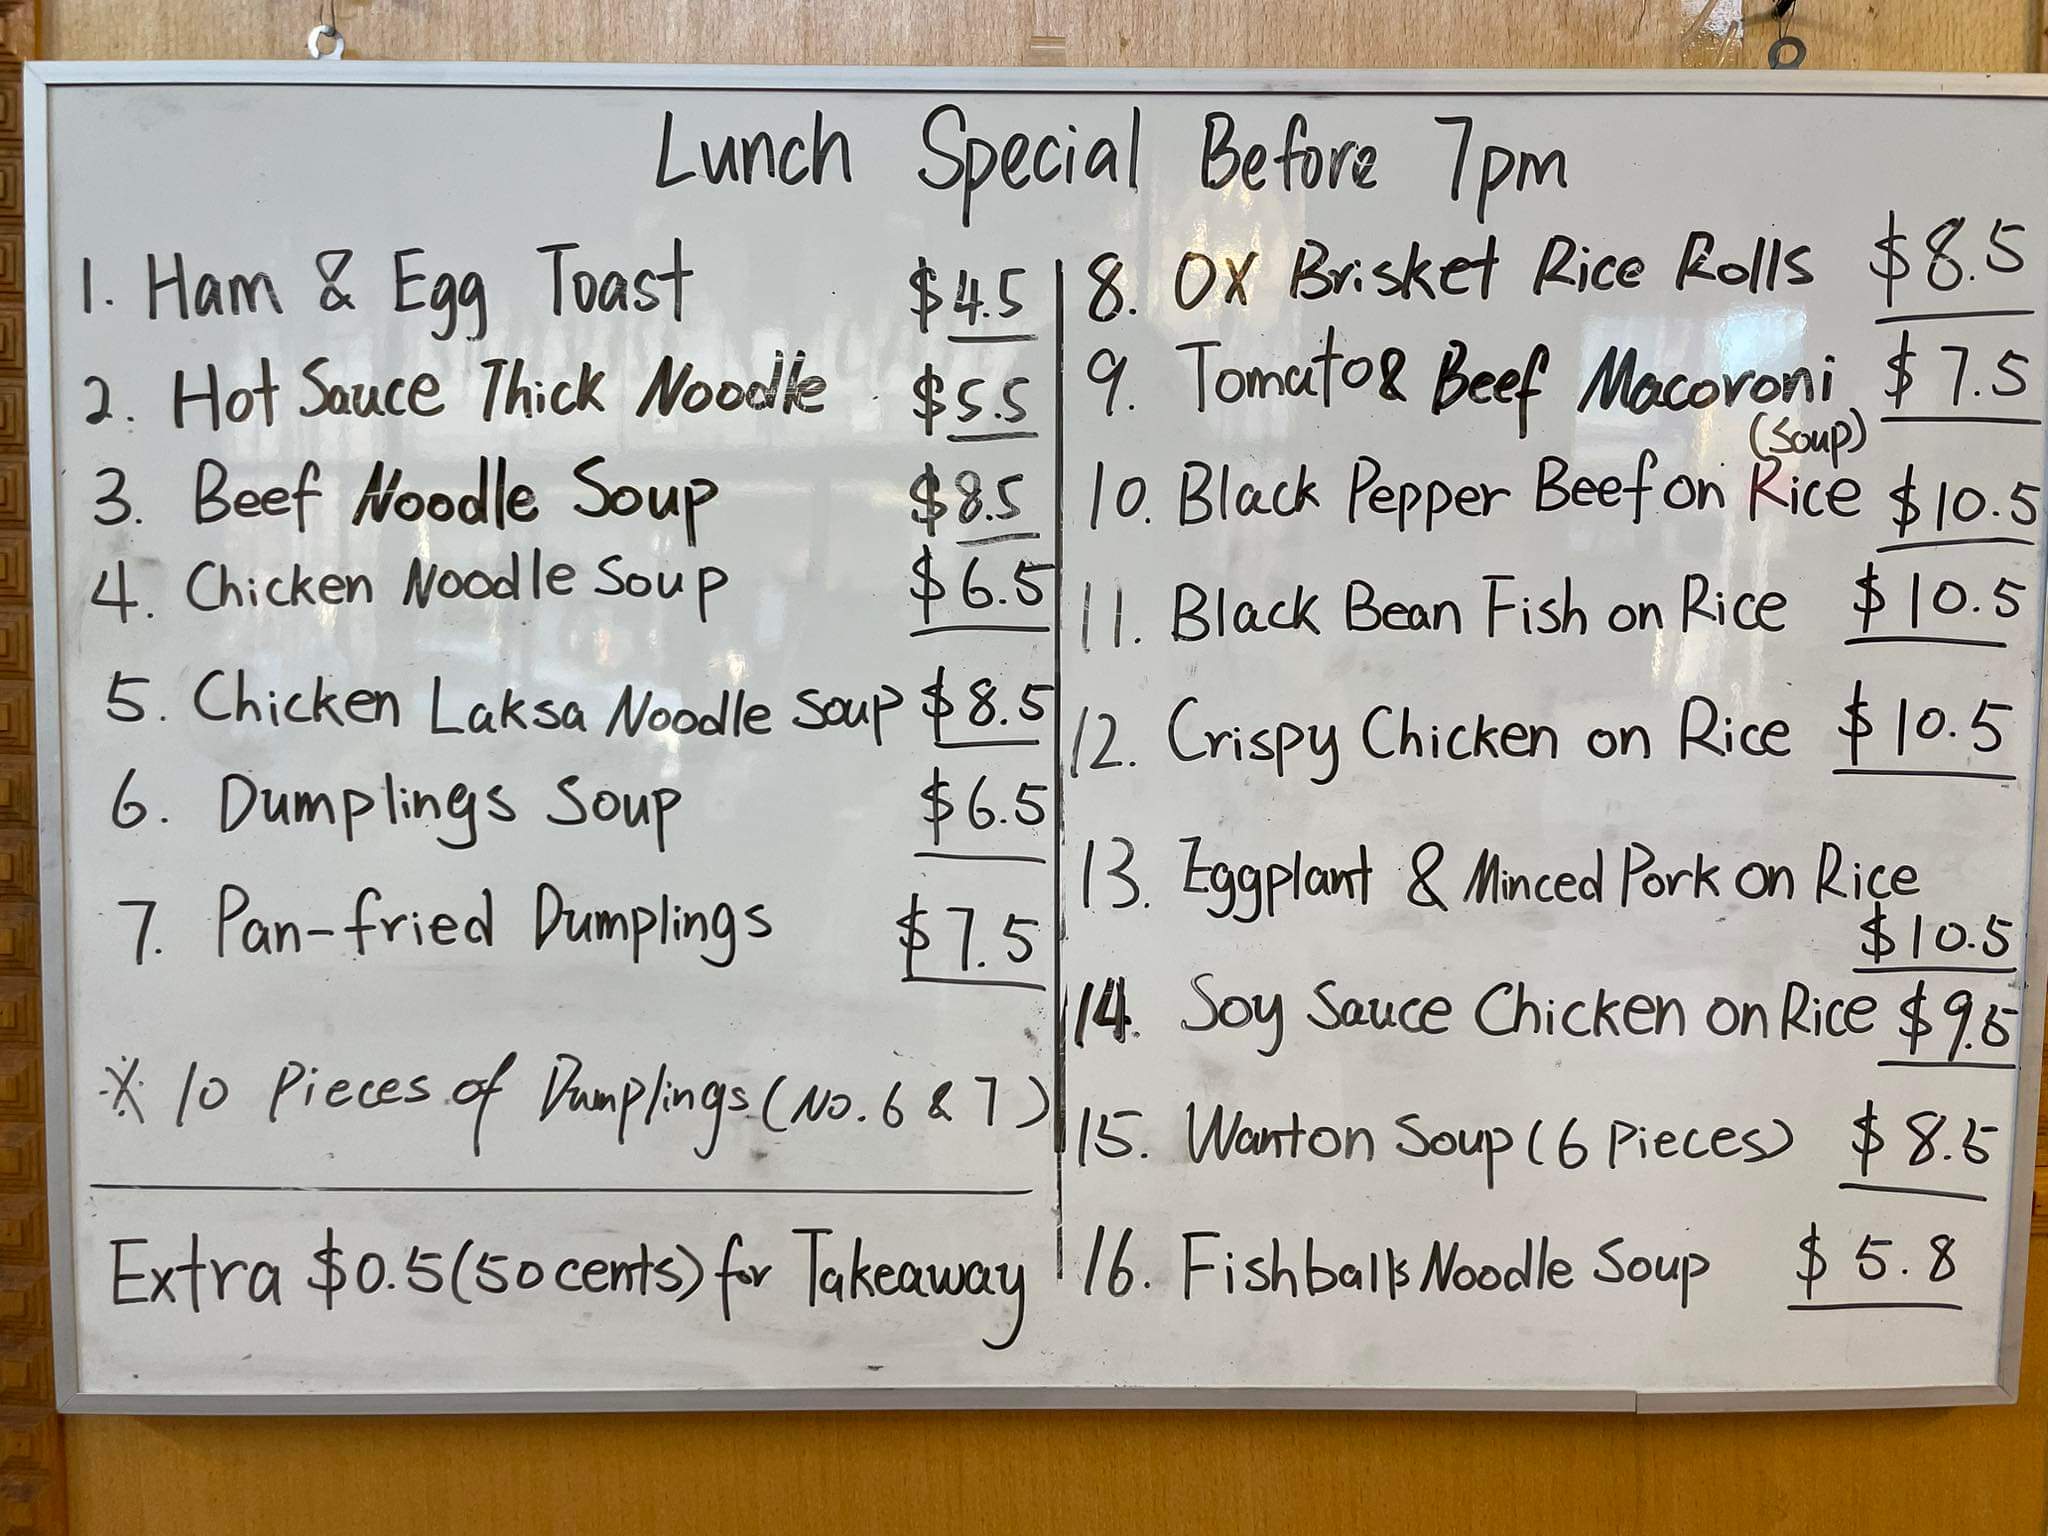 Lunch Special Before 7pm
1. Ham & Egg Toast $4.5
2. Hot Sauce Thick Noodle $5.5
3. Beef Noodle Soup $8.5
4. Chicken Noodle Soup $6.5
5. Chicken Laksa Noodle Soup $8.5
6. Dumplings Soup $6.5
7. Pan-fried Dumplings $7.5
※ 10 Pieces of Dumplings (No. 6 & 7)
Extra $0.5 (50 cents) for Takeaway
8. OX Brisket Rice Rolls $8.5
9. Tomato & Beef Macoroni $7.5
(Soup)
10. Black Pepper Beef on Rice $10.5
11. Black Bean Fish on Rice $10.5
12. Crispy Chicken on Rice $10.5
13. Eggplant & Minced Pork on Rice
$10.5
14. Soy Sauce Chicken on Rice $9.5
15. Wanton Soup (6 Pieces) $8.5
16. Fishballs Noodle Soup $5.8